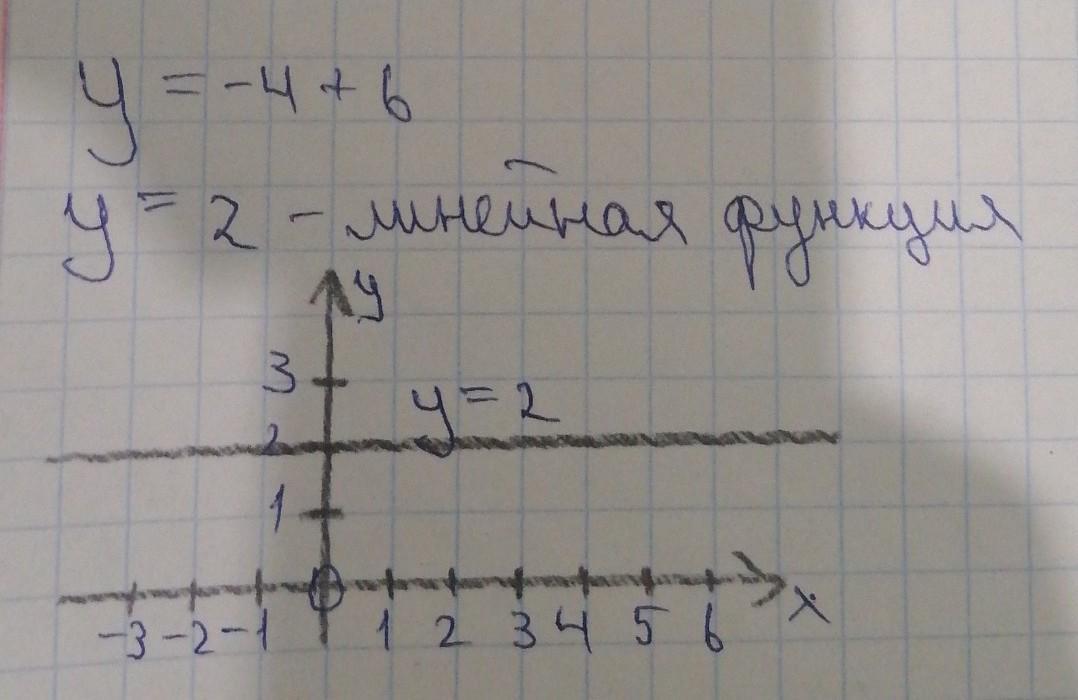 y = -4 + 6
y = 2 - линейная функция
y
3
y = 2
2
1
0
-3 -2 -1 1 2 3 4 5 6 x